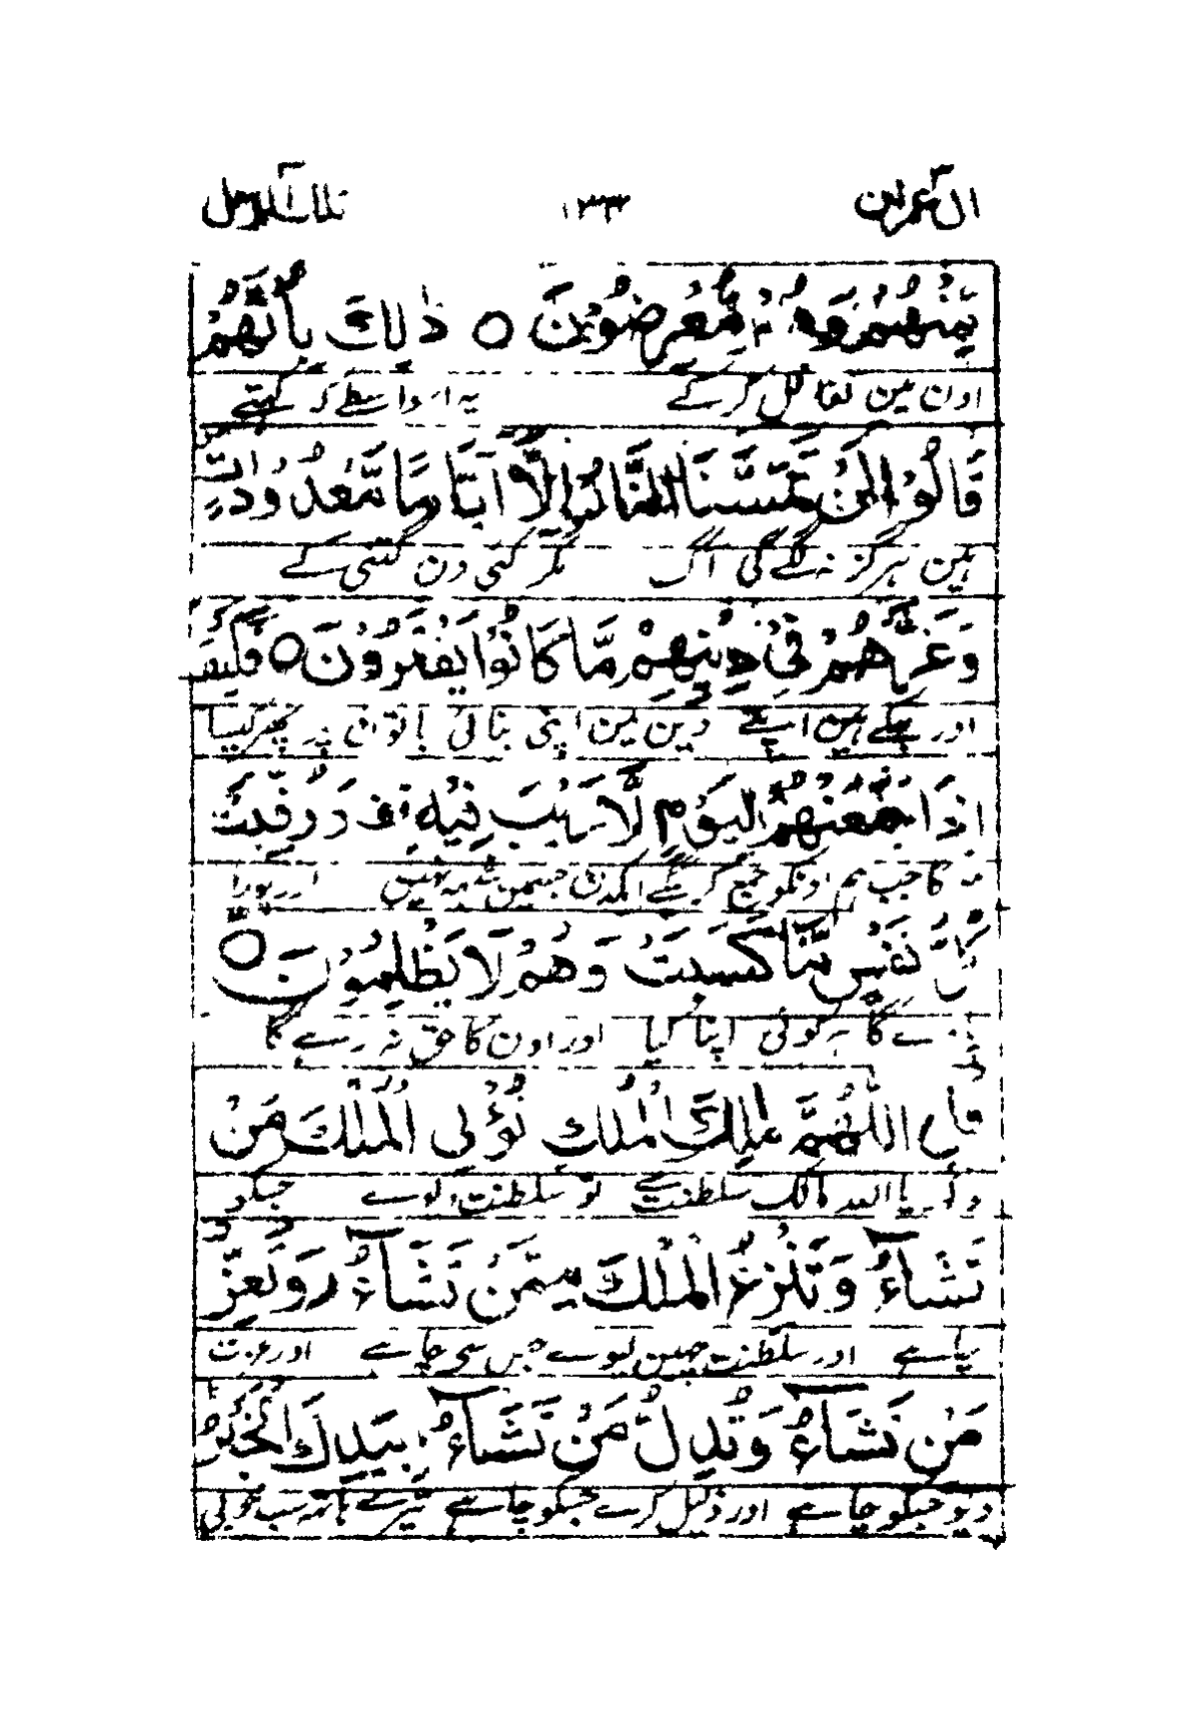 ال عمرٰن ١٣٣ تلك الرسل
مِّنْهُمْ وَهُمْ مُّعْرِضُوْنَ ○ ذٰلِكَ بِاَنَّهُمْ
اون مین تغافل کر کے یہ اسواسطے کہ کہتے
قَالُوْا لَنْ تَمَسَّنَا النَّارُ اِلَّآ اَيَّامًا مَّعْدُوْدٰتٍ
ہین ہرگز نہ لگے گی آگ مگر کئی دن گنتی کے
وَغَرَّهُمْ فِيْ دِيْنِهِمْ مَّا كَانُوْا يَفْتَرُوْنَ ○ فَكَيْفَ
اور بہکے ہین اپنے دین مین اپنی بنائی باتون پر پھر کیسا
اِذَا جَمَعْنٰهُمْ لِيَوْمٍ لَّا رَيْبَ فِيْهِ قف وَوُفِّيَتْ
ہوگا جب ہم اونکو جمع کرینگے ایکدن جسمین شبہہ نہین اور پورا
كُلُّ نَفْسٍ مَّا كَسَبَتْ وَهُمْ لَا يُظْلَمُوْنَ ○
پاوے گا ہر کوئی اپنا کیا اور اون کا حق نہ رہے گا
قُلِ اللّٰهُمَّ مٰلِكَ الْمُلْكِ تُؤْتِي الْمُلْكَ مَنْ
تو کہہ یا اللہ مالک سلطنت کے تو سلطنت دیوے جسکو
تَشَآءُ وَتَنْزِعُ الْمُلْكَ مِمَّنْ تَشَآءُ ز وَتُعِزُّ
چاہے اور سلطنت چھین لیوے جس سی چاہے اور عزت
مَنْ تَشَآءُ وَتُذِلُّ مَنْ تَشَآءُ بِيَدِكَ الْخَيْرُ
دیو جسکو چاہے اور ذلیل کرے جسکو چاہے تیرے ہاتھ سب خوبی